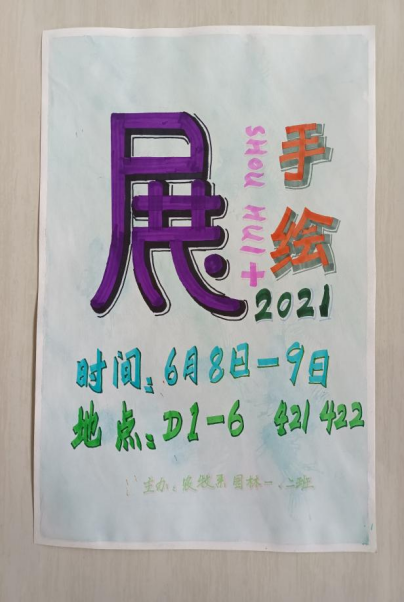 手绘
展
SHOU HUI
2021
时间:6月8日-9日
地点:D1-6 421 422
主办:农牧系园林一、二班